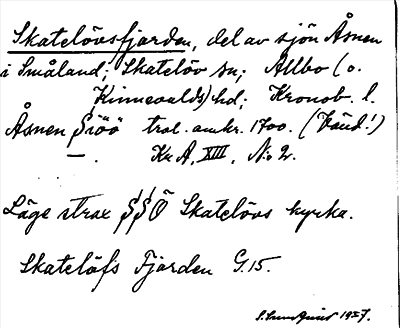 Skatelövsfjorden, del av sjön Åsnen
i Småland; Skatelöv sn; Allbo (o.
Kinnevalds) hd; Kronob. l.
Åsnen Siöö trol. omkr. 1700. (Känd!)
—. Kr A, XIII, No 2.
Läge strax SSÖ Skatelövs kyrka.
Skatelöfs Fjorden G.15.
1927.